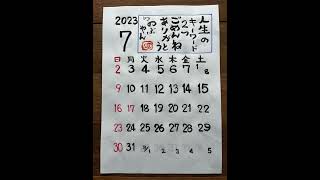 2023
7
人生の
キーワード
2つ
ごめんね
ありがとう
日 月 火 水 木 金 土
1
2 3 4 5 6 7 8
9 10 11 12 13 14 15
16 17 18 19 20 21 22
23 24 25 26 27 28 29
30 31 8/1 2 3 4 5